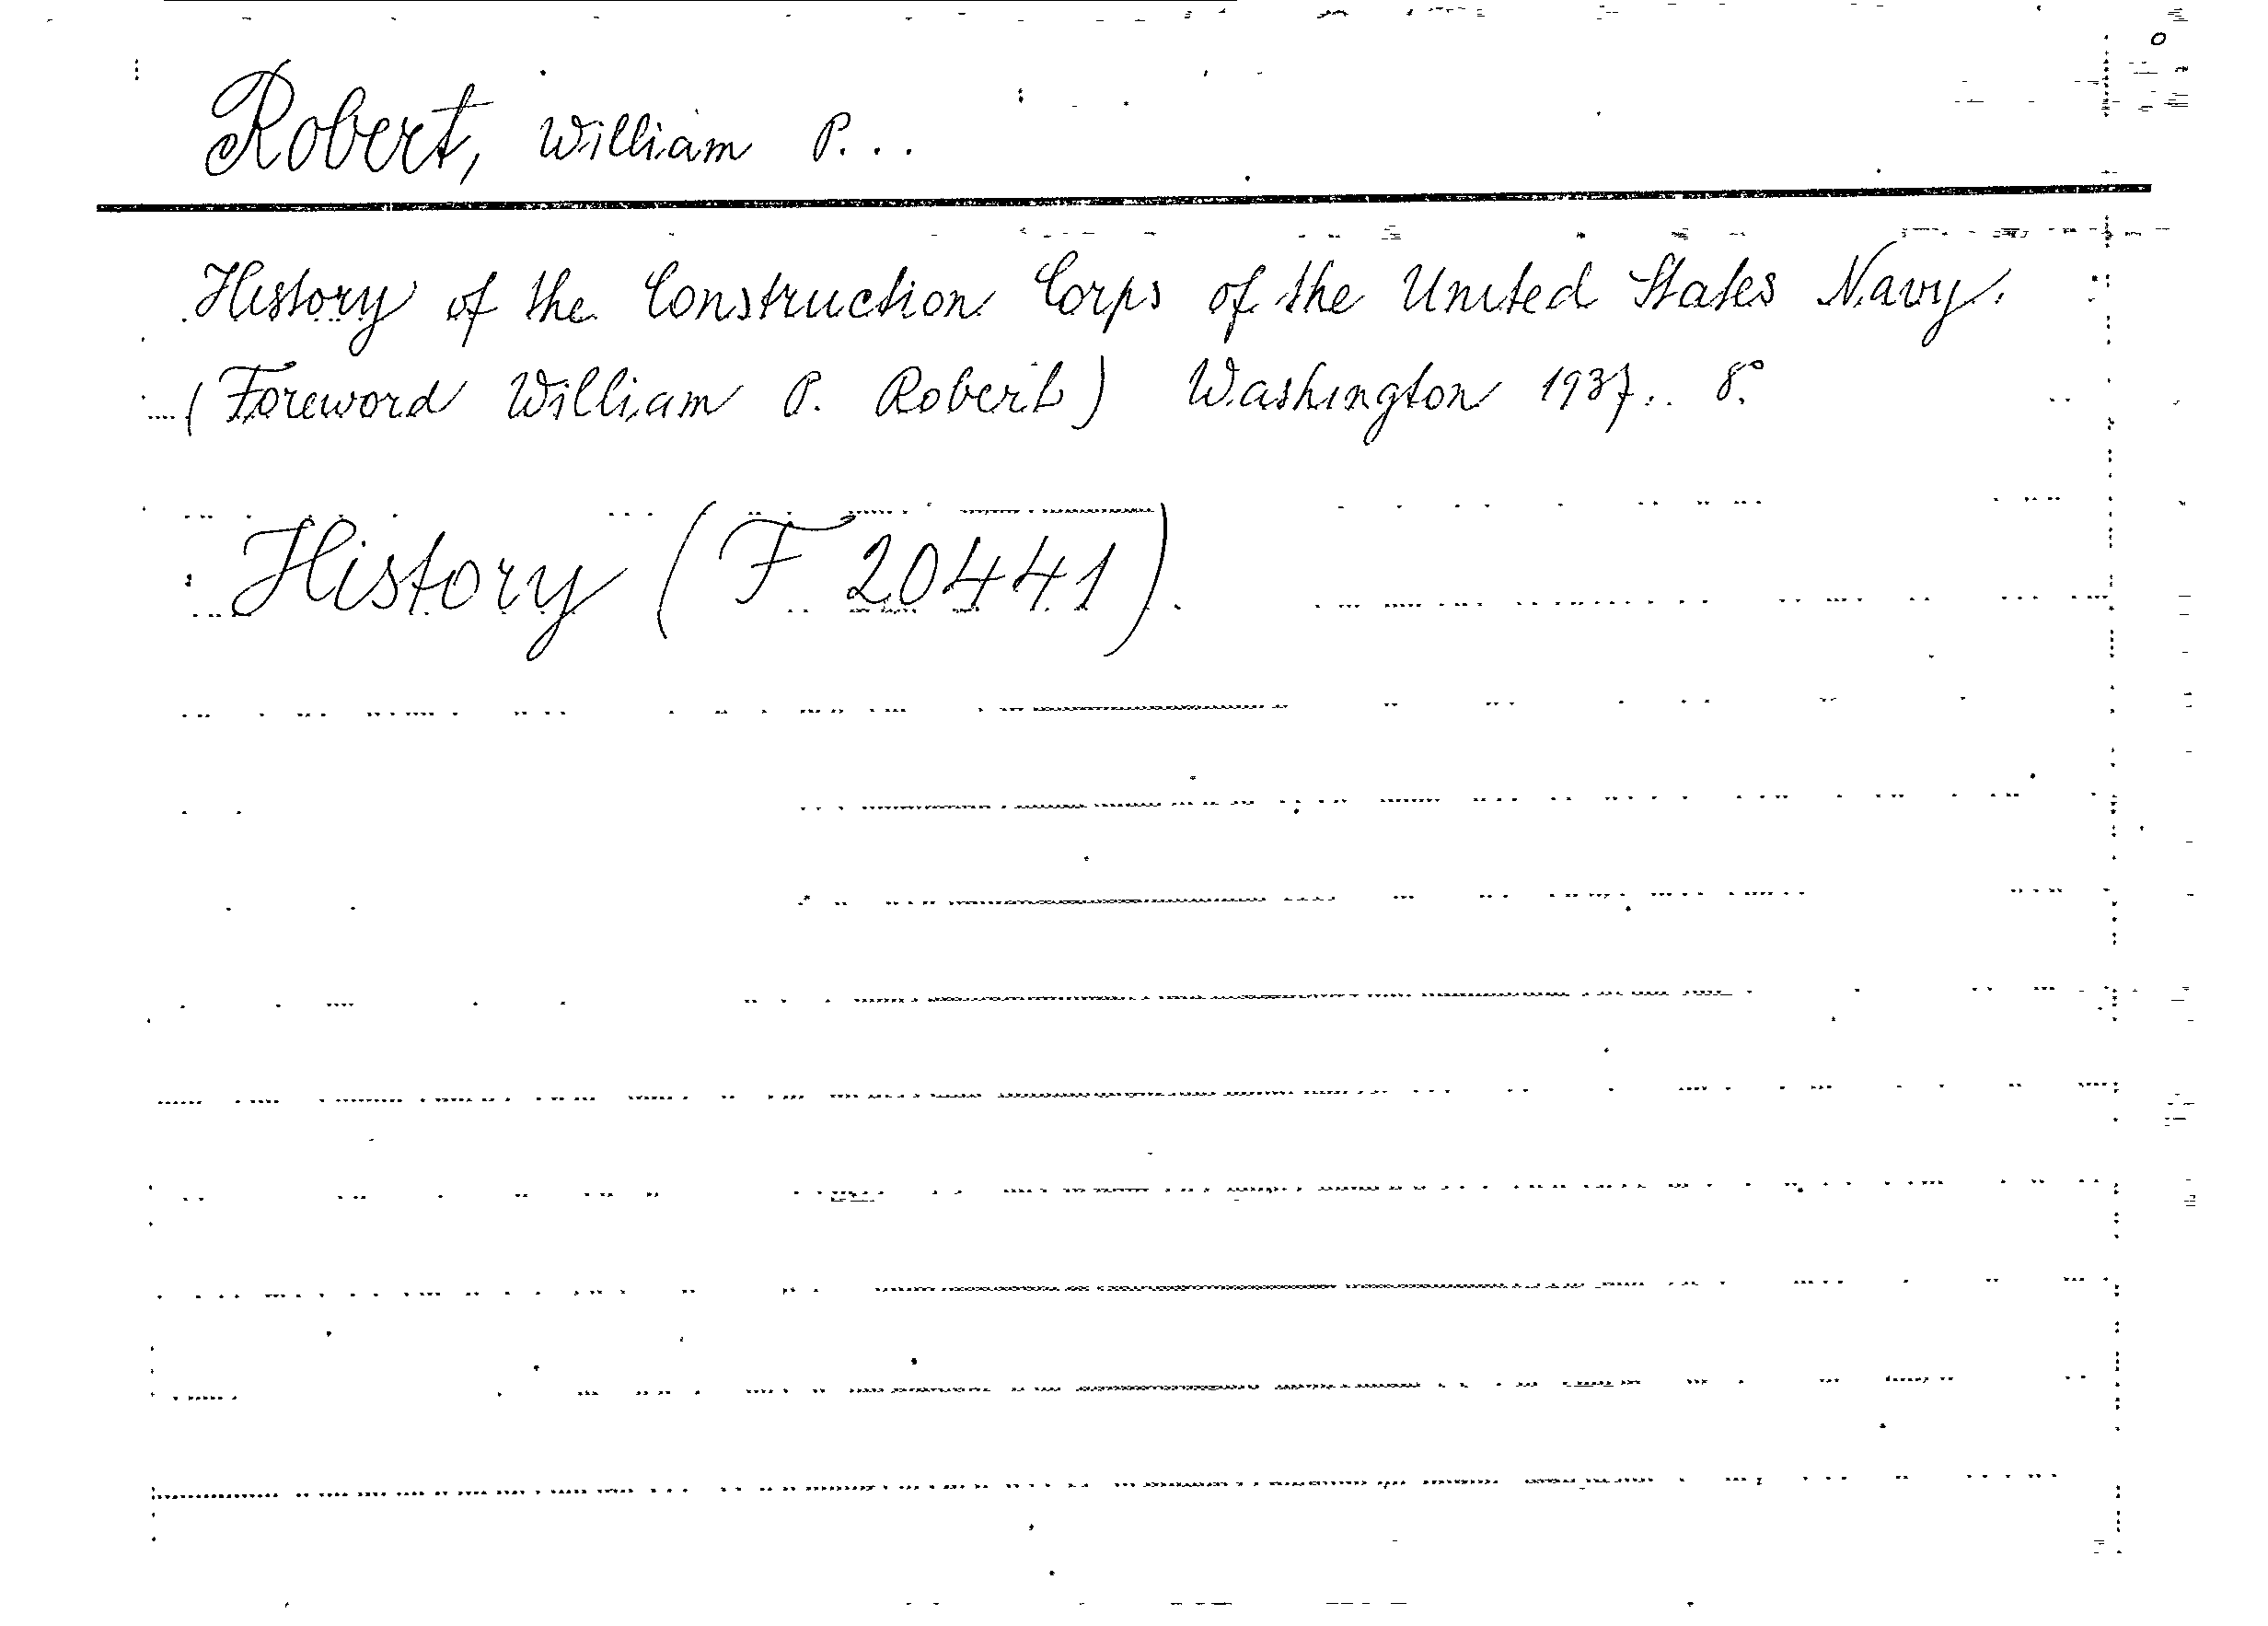 Robert, William P...
History of the Construction Corps of the United States Navy.
(Foreword William P. Robert) Washington 1937. 8°.
History (F 20441).